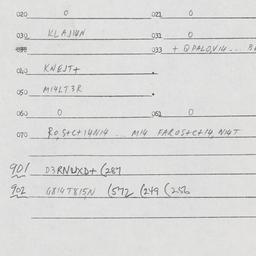 020 0 021 0
030 KLASI4N 031 0
033 + QPALO,VI4...
040 KNEJT+
050 MI4LT3R
060 0 061 0
070 RO,S+C+I4NI4 ... MI4 FAROS+C+I4,NI4T
901 D3RNUXD+ (287
902 G8I4T8I5N (572 (249 (256